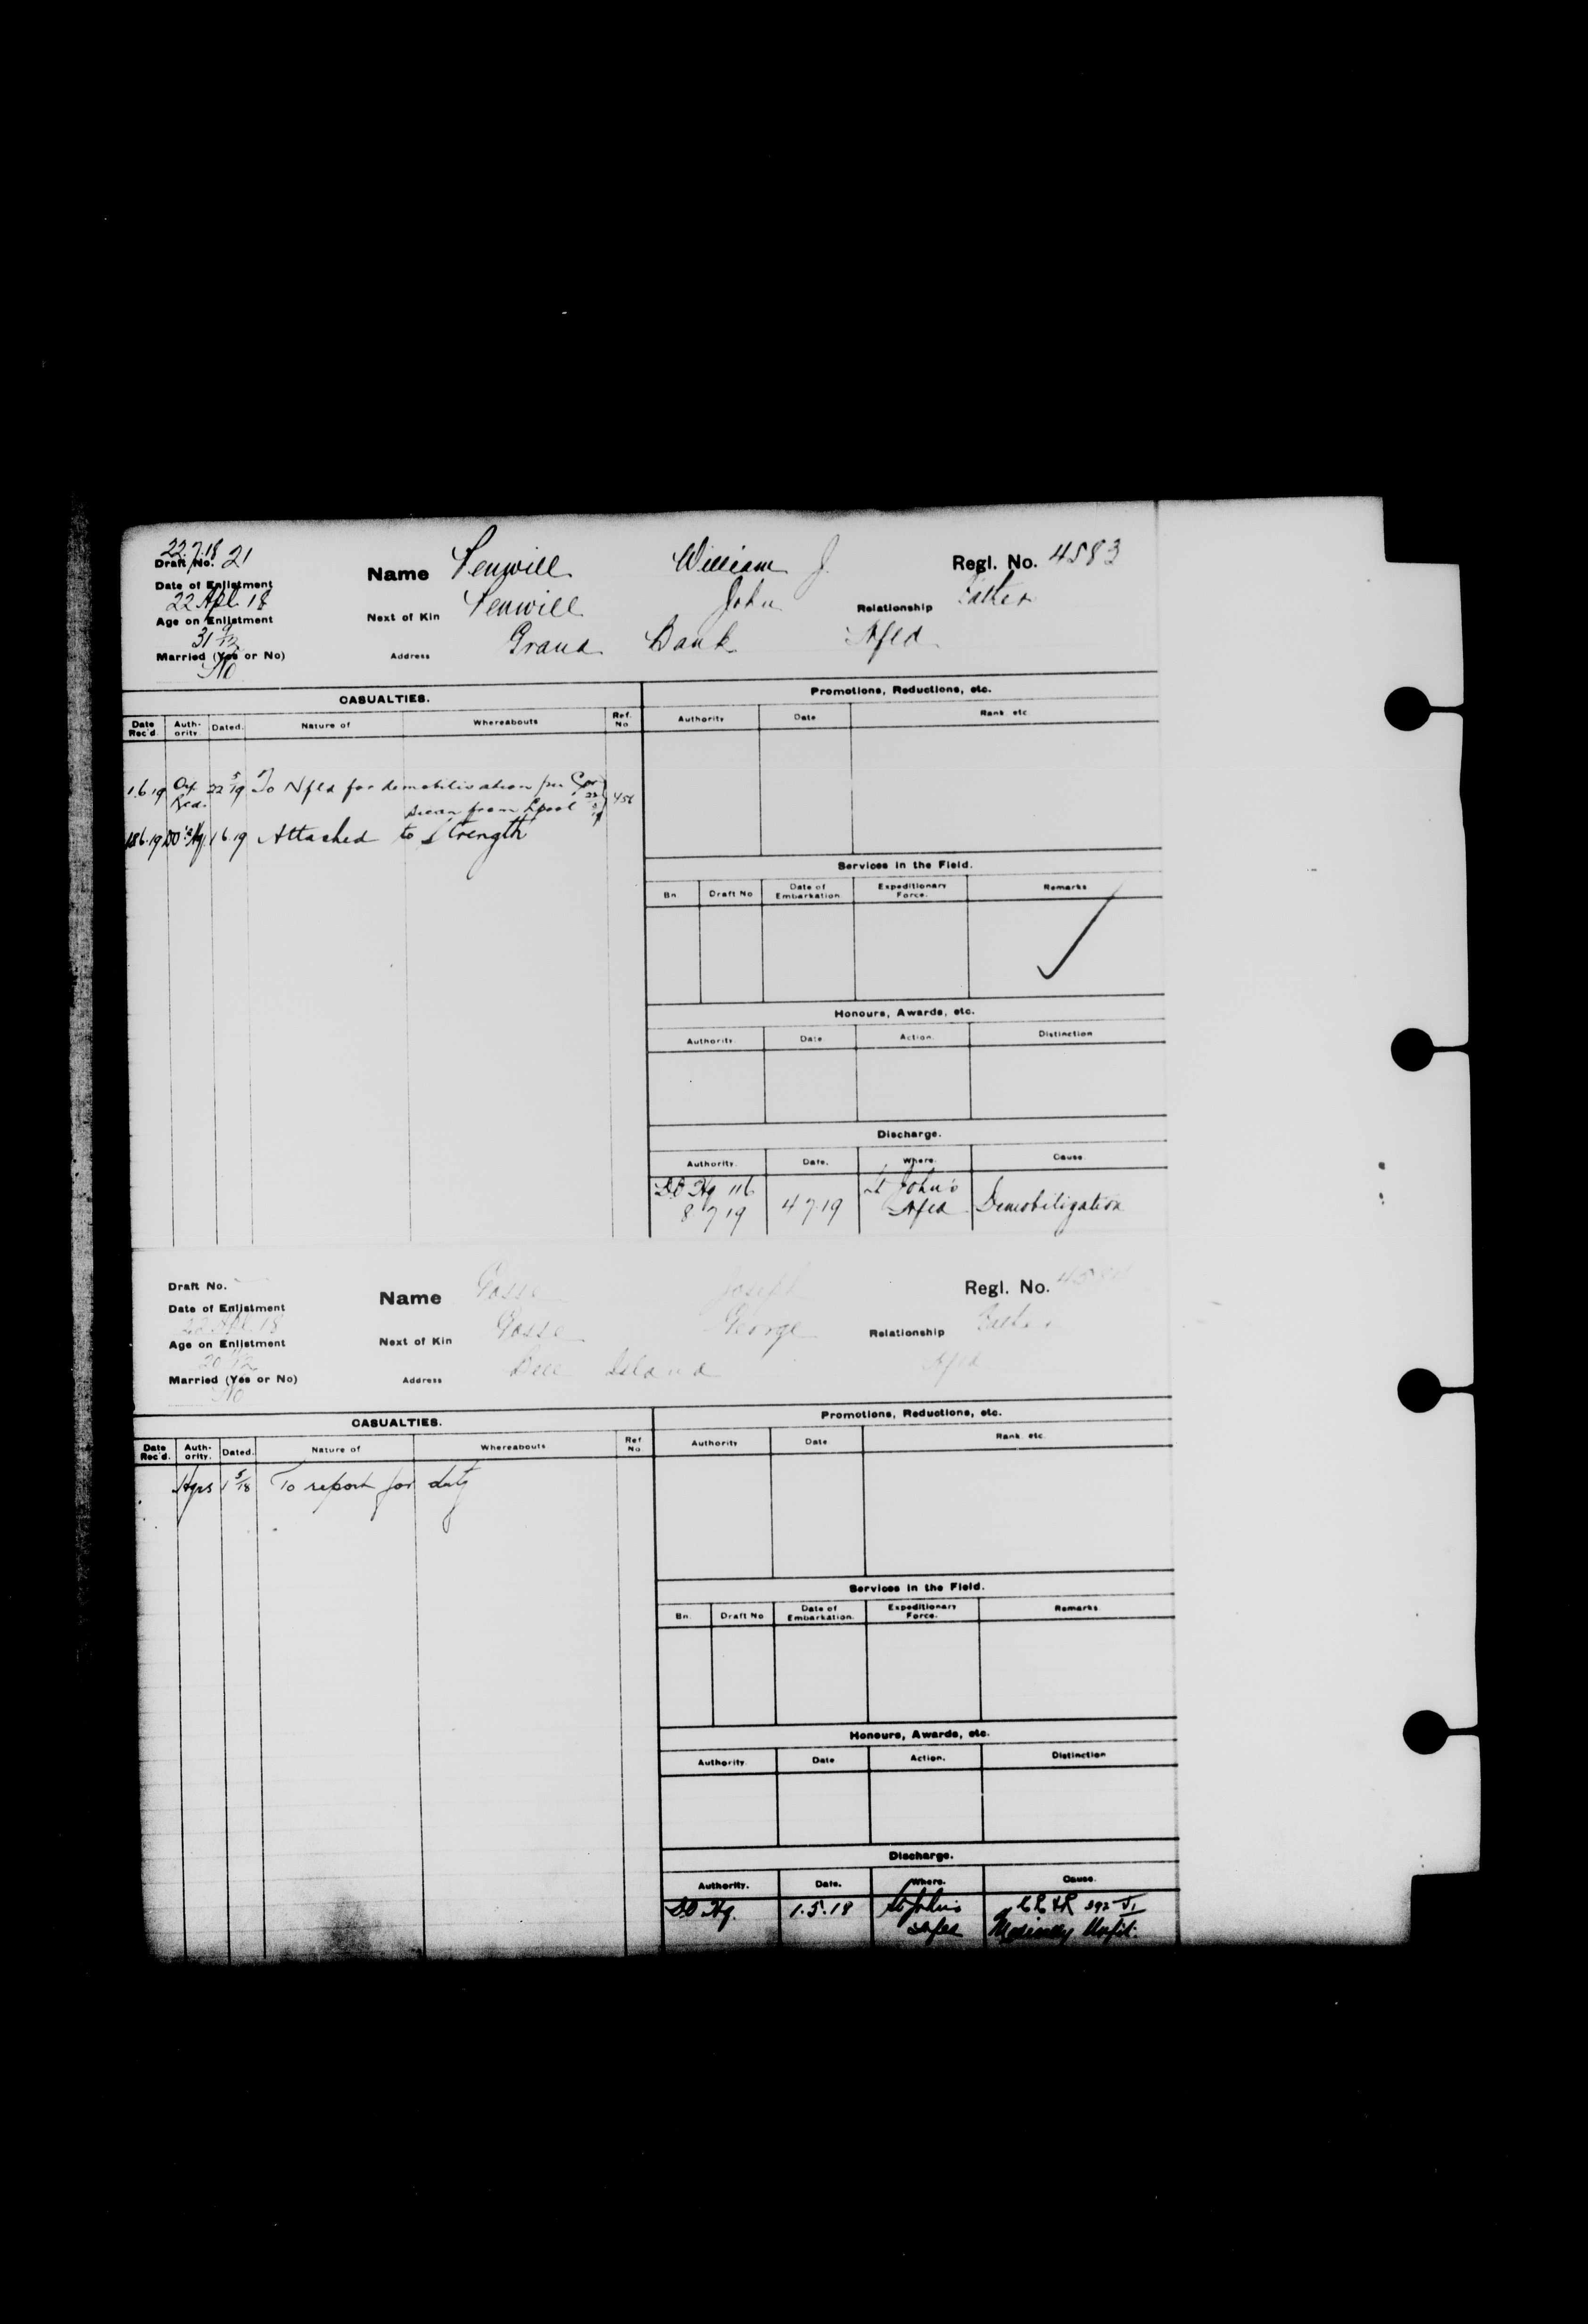 22.7.18
Draft No. 21
Name Penwill William J. Regl. No. 4583
Date of Enlistment
22 Apl 18
Next of Kin Penwill John Relationship Father
Age on Enlistment
31
Address Grand Bank Nfld
Married (Yes or No)
No
CASUALTIES. Promotions, Reductions, etc.
Date Rec'd. Authority. Dated. Nature of Whereabouts Ref. No Authority Date Rank etc
1.6.19 22 5/19 To Nfld for demobilisation per Cor
sican from Lpool
18.6.19 DO Hq 1 6 19 Attached to Strength
Services in the Field.
Bn. Draft No Date of Embarkation Expeditionary Force. Remarks
Honours, Awards, etc.
Authority. Date Action. Distinction
Discharge.
Authority. Date. Where. Cause.
DO Hq 116 8 7 19 4 7 19 St John's Nfld Demobilization
Draft No.
Name Gosse Joseph Regl. No. 4584
Date of Enlistment
22 Apl 18
Next of Kin Gosse George Relationship Father
Age on Enlistment
Address Bell Island Nfld
Married (Yes or No)
No
CASUALTIES. Promotions, Reductions, etc.
Date Rec'd. Authority. Dated. Nature of Whereabouts Ref No Authority Date Rank etc.
Hqrs 1 5/18 To report for duty
Services in the Field.
Bn. Draft No Date of Embarkation. Expeditionary Force. Remarks
Honours, Awards, etc.
Authority. Date Action. Distinction
Discharge.
Authority. Date. Where. Cause.
DO Hq. 1.5.18 St John's Nfld 392 VI Medically Unfit.